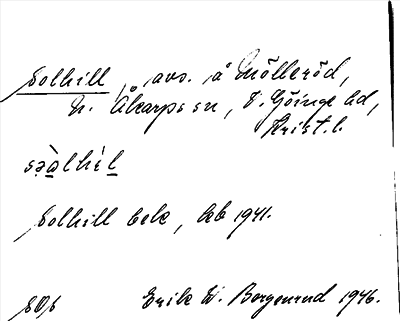 Solhill, avs. å Mölleröd,
N. Åkarps sn, V. Göinge hd,
Krist. l.
sə̀alhè́l
Solhill bek, Eb 1941.
SOb Erik W. Bergenrud 1946.